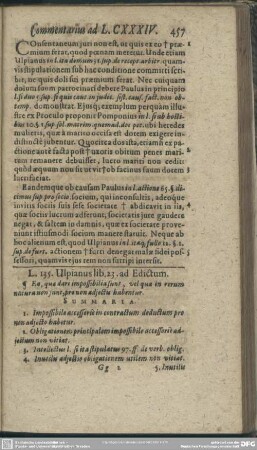 Commentarius ad L. CXXXIV. 457
COnsentaneum juri non est, ut quis ex eo † præ-
mium ferat, quod pœnam meretur. Unde etiam
Ulpianus in l. ita demum 31. sup. de recept. arbitr. quam-
vis stipulationem sub hac conditione committi scri-
bit, ne quis doli sei præmium ferat. Nec cuiquam
dolum suum patrocinari debere Paulus in principio
l. si duo sup. si quis caut. in judic. sist. causa fact. non ob-
temp. demonstrat. Ejusq; exemplum perquam illu-
stre ex Proculo proponit Pomponius in l. si ab hosti-
bus 10. §. 1. sup. sol. matrim. quemad. dos pet. ubi heredes
mulieris, quæ à marito occisa est dotem exigere in-
distinctè jubentur. Quoniam dos ista, etiamsi ex pa-
ctione aut è facto post † uxoris obitum penes mari-
tum remanere debuisset, lucro mariti non cedit:
quòd æquum non sit virũ ob facinus suum dotem
lucrifacere.
Eandemque ob causam Paulus in l. actione 65. §.
socium, qui inconsultis, adeoque
invitis sociis suis sese societate † abdicarit in iis,
quæ socio lucrum adferunt, societatis jure gaudere
negat, & saltem in damnis, quæ ex societate pro-
veniunt istiusmodi socium manere statuit. Neque ab
hoc alienum est, quod Ulpianus in l. itaq; fullo 12. §. 1.
sup. de furt. actionem † furti denegat malæ fidei pos-
sessori, quamvis ejus rem non surripi intersit.
L. 135. Ulpianus lib. 23. ad Edictum.
¶ Ea, quæ dari impossibilia sunt, vel quæ in rerum
natura non sunt, pro non adjectis habentur.
SUMMARIA.
1. Impossibile accessorie in contractum deductum pro
non adjecto habetur.
2. Obligationem principalem impossibile accessoriè ad-
jectum non vitiat.
3. Intellectus l. si ita stipulatus 97. ff. de verb. oblig.
4. Inutilis adjectio obligationem utilem non vitiat.
Gg 2 5. Inutilis